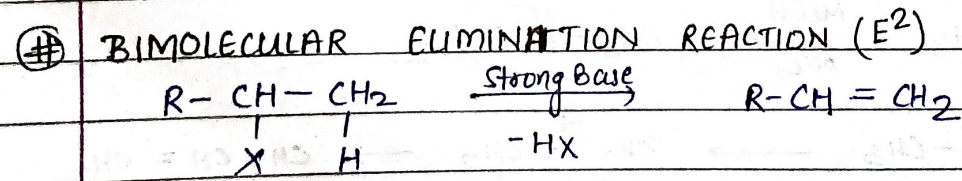 # BIMOLECULAR ELIMINATION REACTION (E²)
R- CH - CH₂ Strong Base R-CH = CH₂
X H -HX